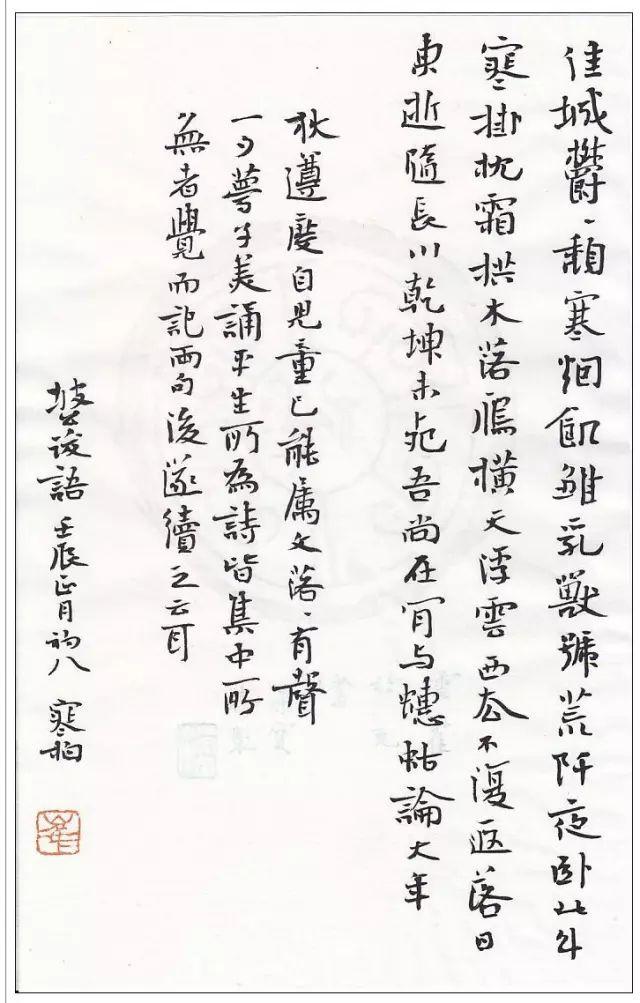 佳城鬱〻頹寒烟飢雛乳獸號荒阡夜卧北斗
寒掛枕霜拱木落雁橫天浮雲西去不復返落日
東逝隨長川乾坤未死吾尚在肯与蟪蛄論大年
狄遵度自兒童已能屬文落〻有聲
一夕夢子美誦平生所為詩皆集中所
無者覺而記兩句後遂續之云耳
坡語 壬辰正月初八 寒柏